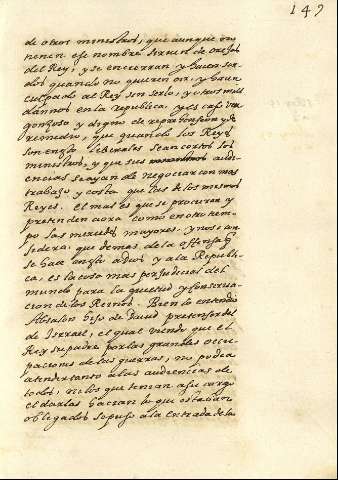 149
de otros ministros, que aunque no
tienen ese nombre siruen de orejas
del Rey, y se encierran y hacen sor-
dos quando no quieren oir, y hazen
culpado al Rey son serlo, y otros mill
daños en la republica, y es caso ver
gonzoso y digno de reprehension y de
remedio, que quando los Reyes
son en esto liberales sean cortos los
ministros, y que sus audi-
encias se ayan de negociar con mas
trabajo y costa que las de los mesmos
Reyes. El mal es que se procuran y
pretenden aora como en otro tiem-
po las mercedes mayores, y no se con
sidera, que demas de la offensa q̃
se haze en esto a dios y a la Republi-
ca, es la cosa mas perjudicial del
mundo para la quietud y conserua-
cion de los Reinos. Bien lo entendio
Absalon hijo de Dauid pretensor del
de Isrrael, el qual viendo que el
Rey su padre por las grandes occu-
paciones de las guerras, no podia
atender tanto a las audiencias de
todos, ni los que tenian a su cargo
el darlas hacian lo que estauan
obligados se puso a la entrada de la